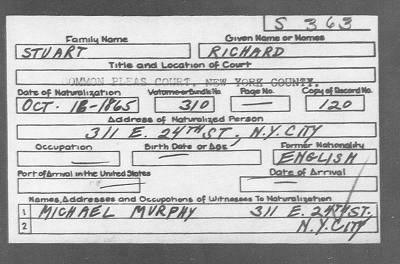 S 363
Family Name Given Name or Names
STUART RICHARD
Title and Location of Court
COMMON PLEAS COURT, NEW YORK COUNTY.
Date of Naturalization Volume or Bundle No. Page No. Copy of Record No.
OCT. 18-1865 310 — 120
Address of Naturalized Person
311 E. 24TH ST., N.Y. CITY
Occupation Birth Date or Age Former Nationality
— — ENGLISH
Port of Arrival in the United States Date of Arrival
— —
Names, Addresses and Occupations of Witnesses To Naturalization
1 MICHAEL MURPHY 311 E. 24TH ST.
2 N.Y. CITY